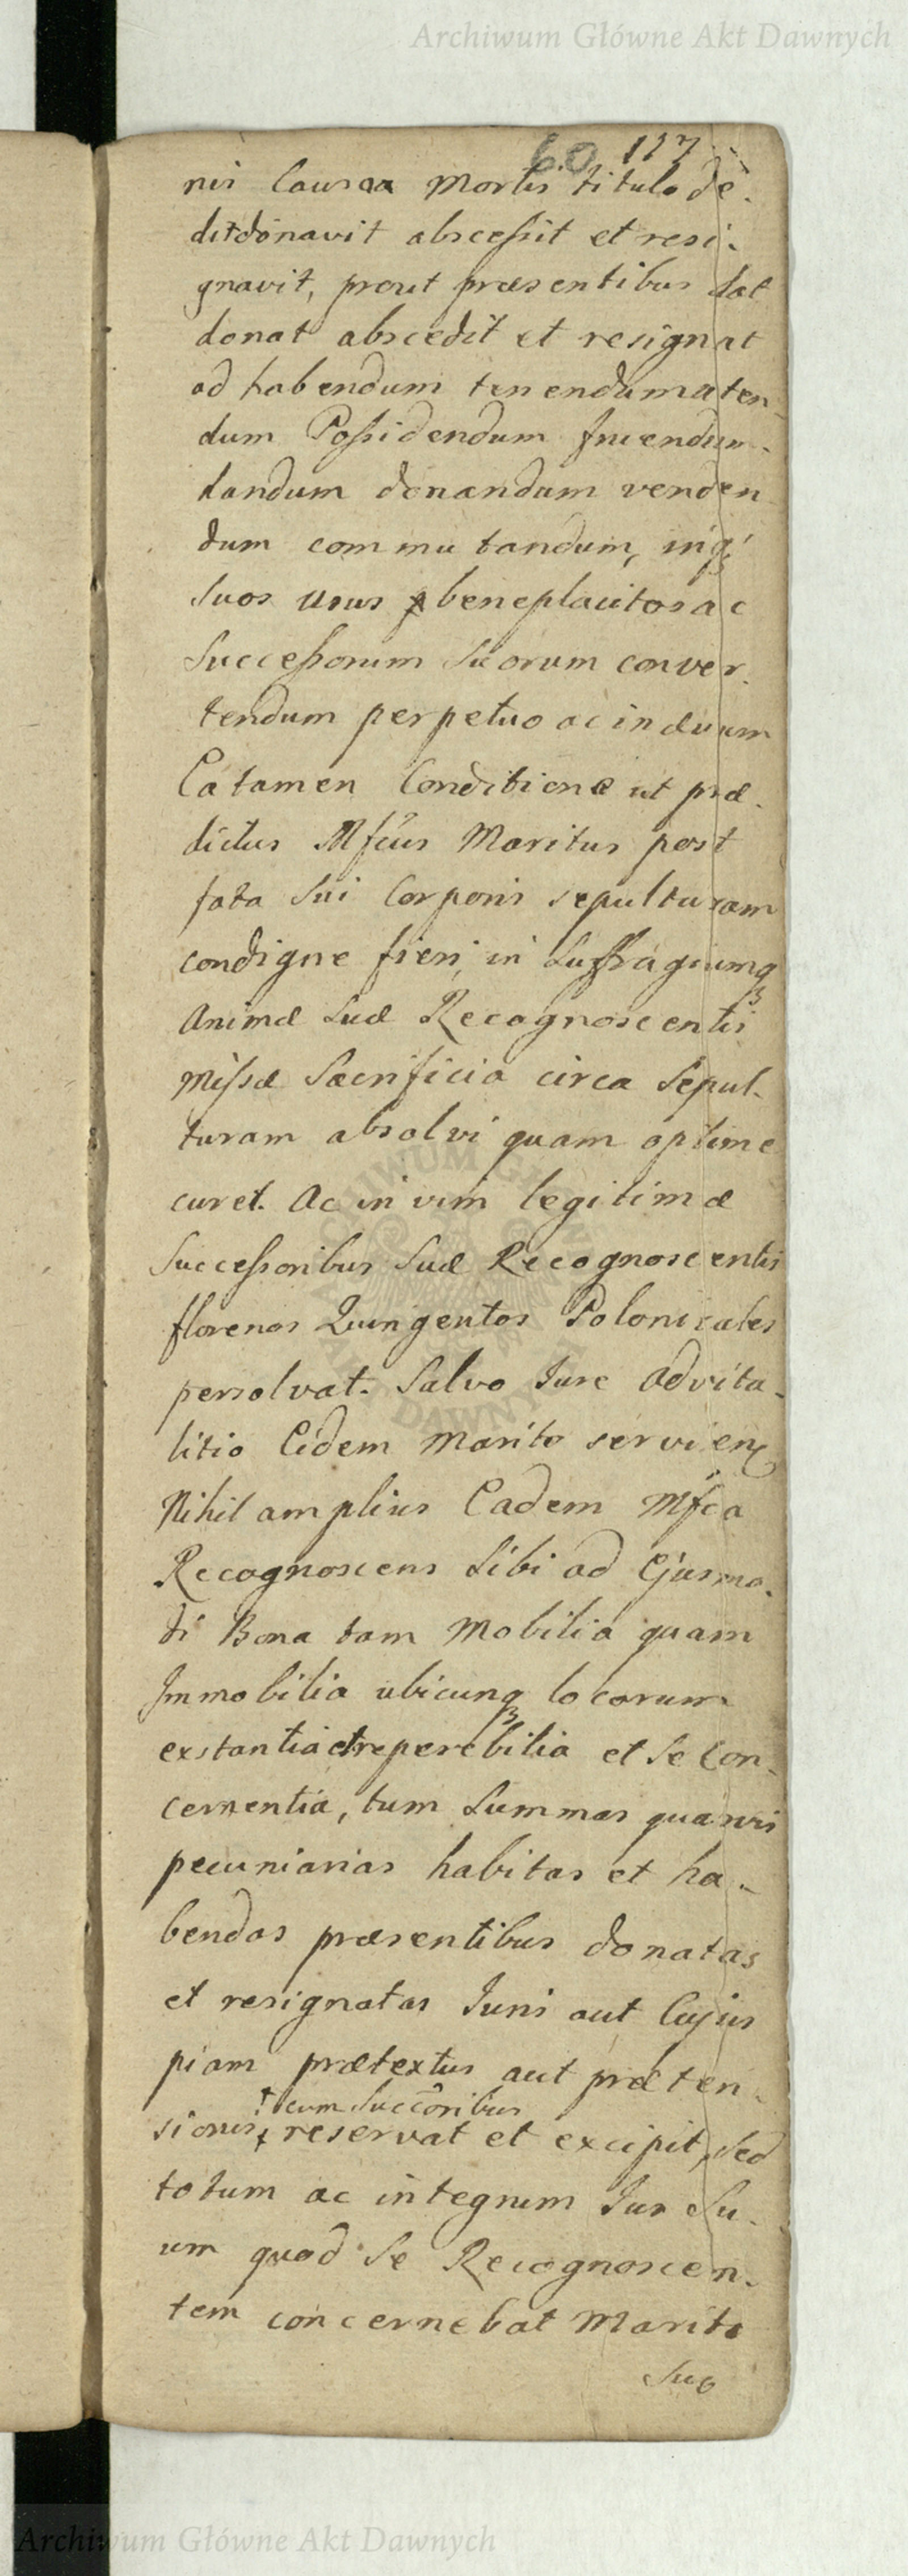 Archiwum Główne Akt Dawnych
60 117
nis Causaa Mortis titulo de-
dit donavit abscessit et resi-
gnavit, prout præsentibus dat
donat abscedit et resignat
ad habendum tenendum uten-
dum Possidendum fruendum
dandum donandum venden
dum commutandum, inq3
Suos Usus beneplacitos ac
Successorum Suorum conver-
tendum perpetuo ac in ævum
Ea tamen Conditione ut præ-
dictus Mfcus Maritus post
fata Sui Corporis sepulturam
condigne fieri, in Suffragiumq3
Animæ Suæ Recognoscentis
Missæ Sacrificia circa Sepul-
turam absolvi quam optime
curet. Ac in vim legitimæ
Successoribus Suæ Recognoscentis
florenos Quingentos Polonicales
persolvat. Salvo Jure Advita-
litio Eidem Marito servien
Nihil amplius Eadem Mfca
Recognoscens Sibi ad Ejusmo-
di Bona tam Mobilia quam
Immobilia ubicunq3 locorum
exstantia et reperebilia et Se Con-
cernentia, tum Summas quasvis
pecuniarias habitas et ha-
bendas præsentibus donatas
et resignatas Juris aut Cujus
piam prætextus aut præten-
† cum Succôribus
sionis † reservat et excipit, Sed
totum ac integrum Jus Su-
um quod Se Recognoscen-
tem concernebat Marito
Suo
Archiwum Główne Akt Dawnych